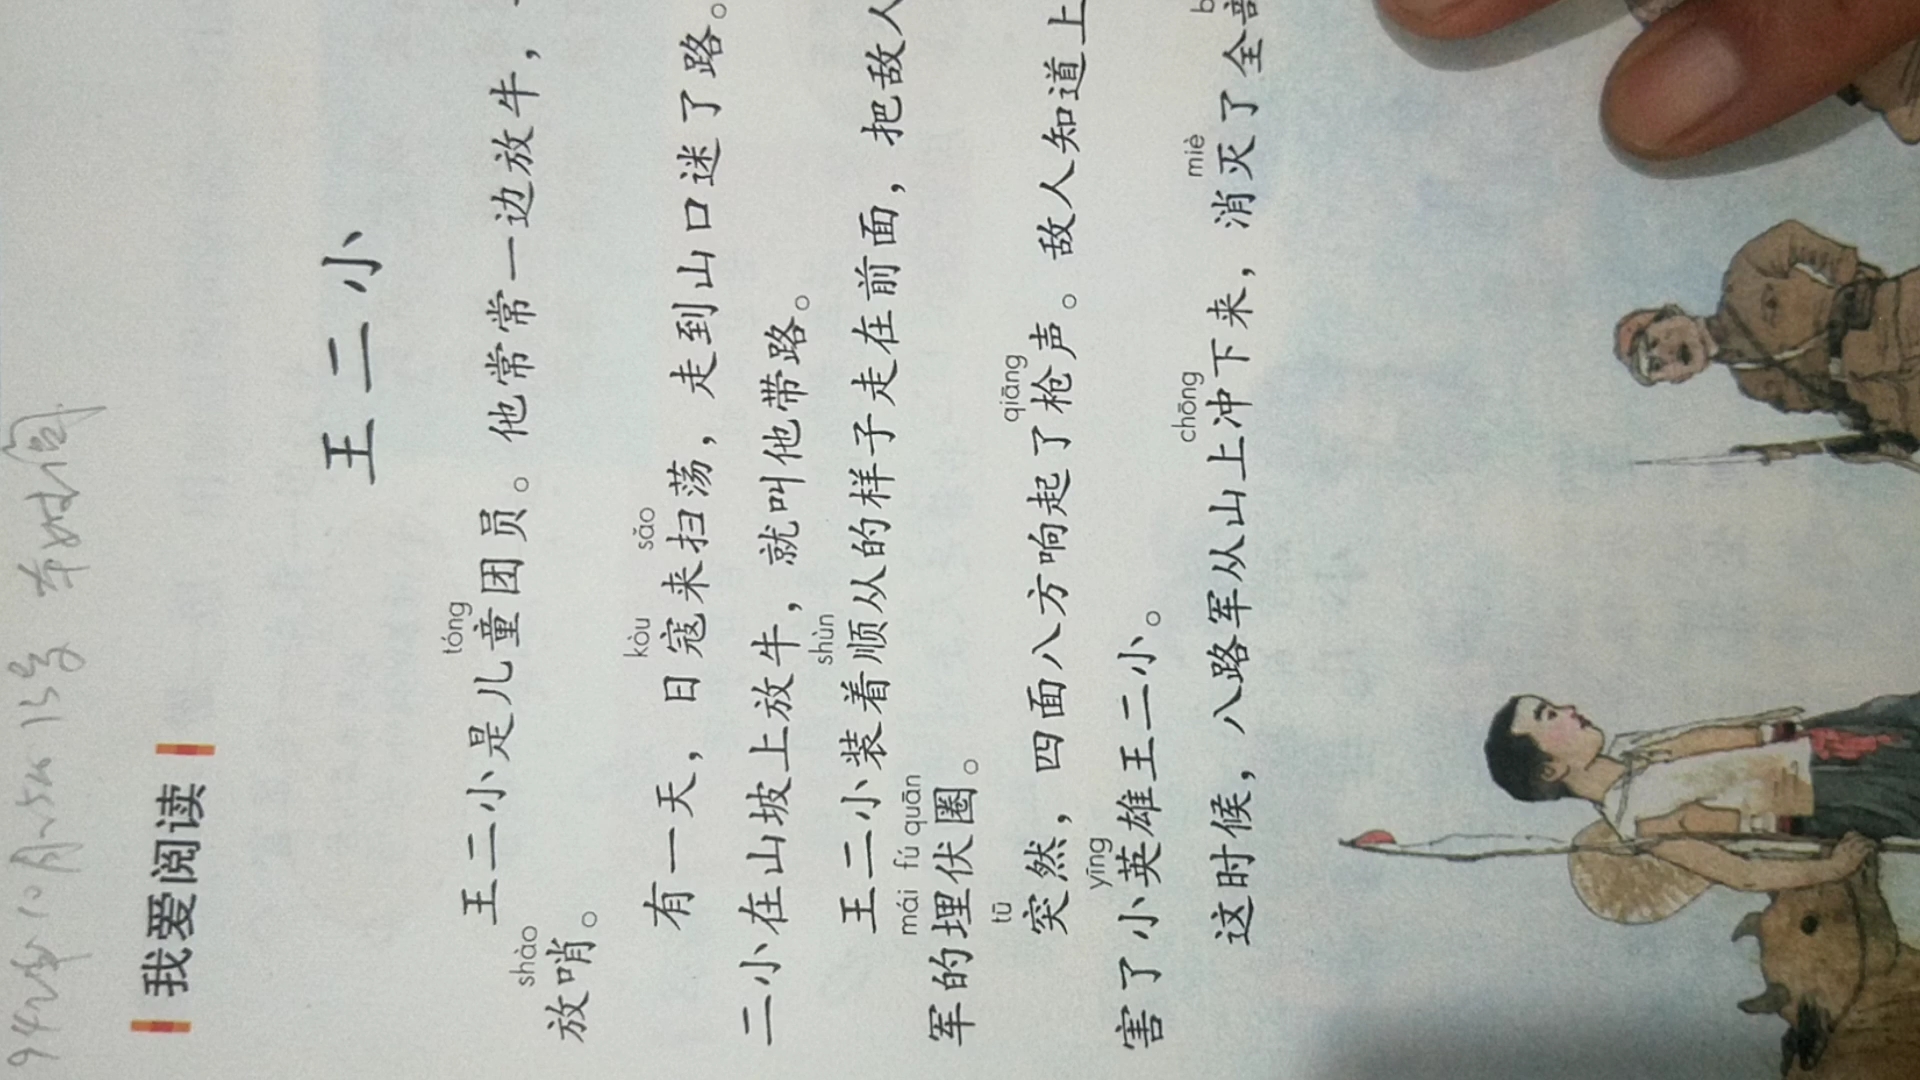 我爱阅读
王二小
tóng
王二小是儿童团员。他常常一边放牛，
shào
放哨。
kòu sǎo
有一天，日寇来扫荡，走到山口迷了路。
二小在山坡上放牛，就叫他带路。
shùn
王二小装着顺从的样子走在前面，把敌人
mái fú quān
军的埋伏圈。
tū qiāng
突然，四面八方响起了枪声。敌人知道上
yīng
害了小英雄王二小。
chōng miè
这时候，八路军从山上冲下来，消灭了全部